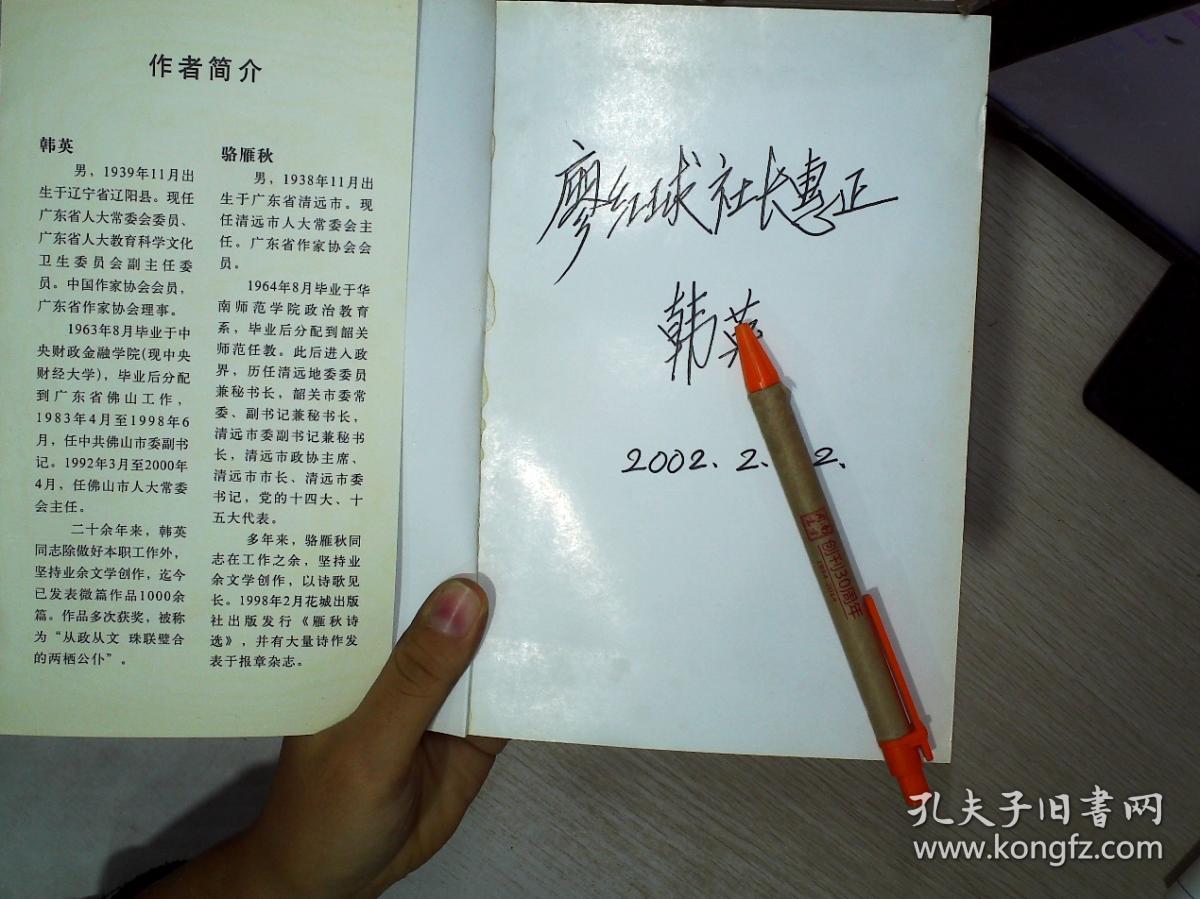 作者简介
韩英
男，1939年11月出
生于辽宁省辽阳县。现任
广东省人大常委会委员、
广东省人大教育科学文化
卫生委员会副主任委
员。中国作家协会会员，
广东省作家协会理事。
1963年8月毕业于中
央财政金融学院(现中央
财经大学)，毕业后分配
到广东省佛山工作，
1983年4月至1998年6
月，任中共佛山市委副书
记。1992年3月至2000年
4月，任佛山市人大常委
会主任。
二十余年来，韩英
同志除做好本职工作外，
坚持业余文学创作，迄今
已发表微篇作品1000余
篇。作品多次获奖，被称
为“从政从文 珠联璧合
的两栖公仆”。
骆雁秋
男，1938年11月出
生于广东省清远市。现
任清远市人大常委会主
任。广东省作家协会会
员。
1964年8月毕业于华
南师范学院政治教育
系，毕业后分配到韶关
师范任教。此后进入政
界，历任清远地委委员
兼秘书长，韶关市委常
委、副书记兼秘书长，
清远市委副书记兼秘书
长，清远市政协主席、
清远市市长、清远市委
书记，党的十四大、十
五大代表。
多年来，骆雁秋同
志在工作之余，坚持业
余文学创作，以诗歌见
长。1998年2月花城出版
社出版发行《雁秋诗
选》，并有大量诗作发
表于报章杂志。
廖红球社长惠正
韩英
2002.2. 2.
创刊30周年
孔夫子旧书网
www.kongfz.com